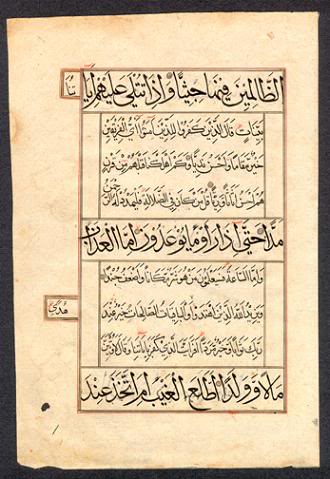 الظالمين فيها جثيا واذا تتلى عليهم ايا
تنا
بينات قال الذين كفروا للذين آمنوا اي الفريقين
خير مقاما واحسن نديا وكم اهلكنا قبلهم من قرن
هم احسن اثاثا ورئيا قل من كان في الضلالة فليمدد له الرحمن
مدا حتى اذا راوا ما يوعدون اما العذاب
واما الساعة فسيعلمون من هو شر مكانا واضعف جندا
ويزيد الله الذين اهتدوا والباقيات الصالحات خير عند
هدى
ربك ثوابا وخير مردا افرايت الذي كفر باياتنا وقال لاوتين
مالا وولدا اطلع الغيب ام اتخذ عند